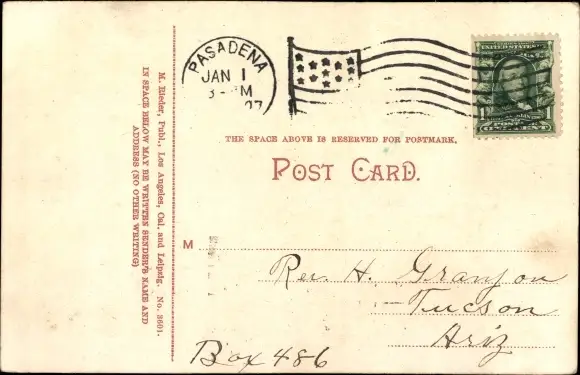 PASADENA
JAN 1
3- M
07
UNITED STATES
1 1
ONE CENT
THE SPACE ABOVE IS RESERVED FOR POSTMARK.
POST CARD.
M. Rieder, Publ., Los Angeles, Cal. and Leipzig. No. 3601.
IN SPACE BELOW MAY BE WRITTEN SENDER'S NAME AND
ADDRESS (NO OTHER WRITING)
M
Rev. H. Granjon
Tucson
Ariz
Box 486